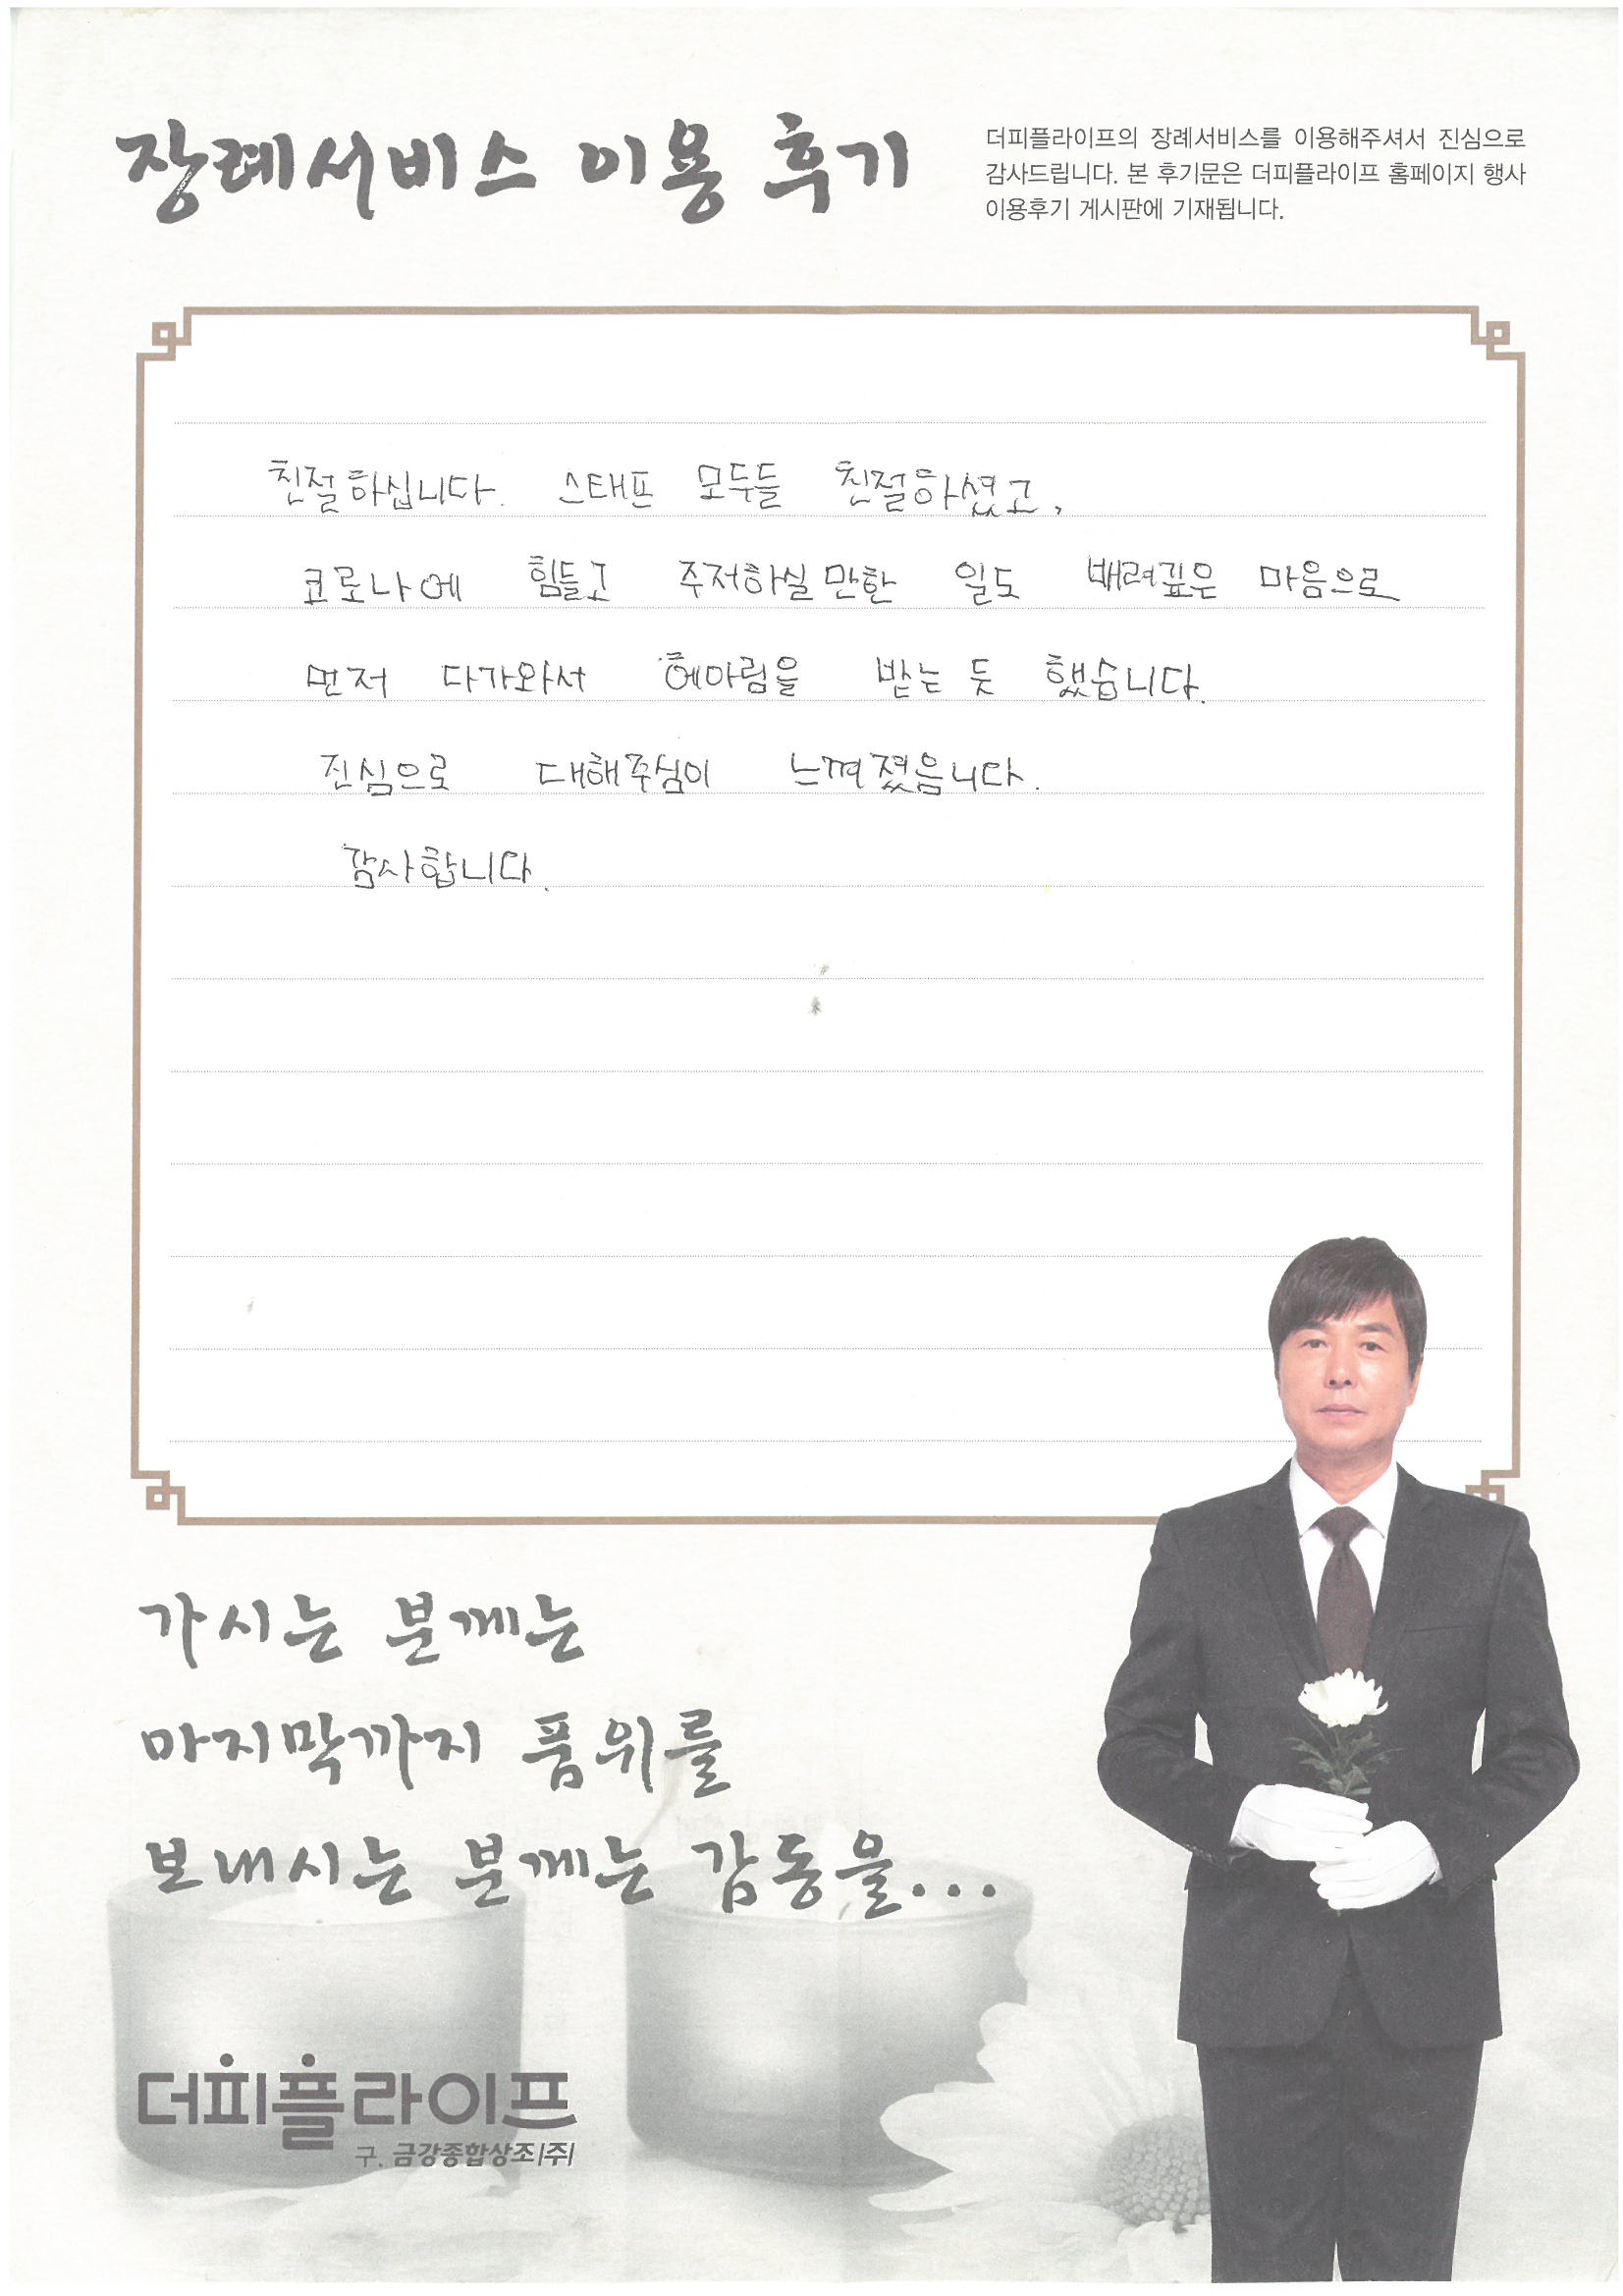 장례서비스 이용 후기
더피플라이프의 장례서비스를 이용해주셔서 진심으로
감사드립니다. 본 후기문은 더피플라이프 홈페이지 행사
이용후기 게시판에 기재됩니다.
친절하십니다. 스태프 모두들 친절하셨고,
코로나에 힘들고 주저하실만한 일도 배려깊은 마음으로
먼저 다가와서 헤아림을 받는 듯 했습니다.
진심으로 대해주심이 느껴졌음니다.
감사합니다.
가시는 분께는
마지막까지 품위를
보내시는 분께는 감동을...
더피플라이프
구. 금강종합상조(주)